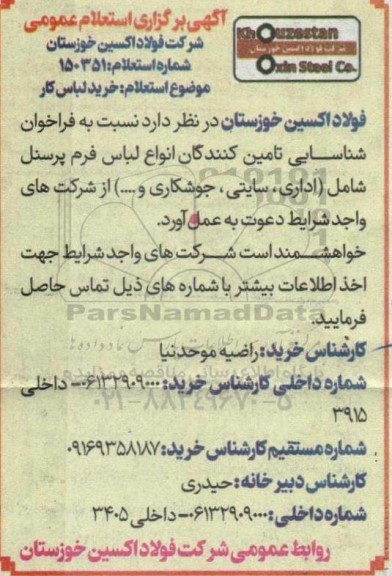 آگهی برگزاری استعلام عمومی
شرکت فولاد اکسین خوزستان
شماره استعلام: ۱۵۰۳۵۱
موضوع استعلام: خرید لباس کار
Khouzestan
شرکت فولاد اکسین خوزستان
Oxin Steel Co.
فولاد اکسین خوزستان در نظر دارد نسبت به فراخوان
شناسایی تامین کنندگان انواع لباس فرم پرسنل
شامل (اداری، سایتی، جوشکاری و....) از شرکت های
واجد شرایط دعوت به عمل آورد.
خواهشمند است شرکت های واجد شرایط جهت
اخذ اطلاعات بیشتر با شماره های ذیل تماس حاصل
فرمایید.
ParsNamadData
کارشناس خرید: راضیه موحدنیا
پایگاه اطلاع رسانی مناقصه و مزایده
شماره داخلی کارشناس خرید: ۰۶۱۳۲۹۰۹۰۰۰- داخلی
۰۲۱-۸۸۳۴۹۶۷۰-۵
۳۹۱۵
شماره مستقیم کارشناس خرید: ۰۹۱۶۹۳۵۸۱۸۷
کارشناس دبیرخانه: حیدری
شماره داخلی: ۰۶۱۳۲۹۰۹۰۰۰- داخلی ۳۴۰۵
روابط عمومی شرکت فولاد اکسین خوزستان